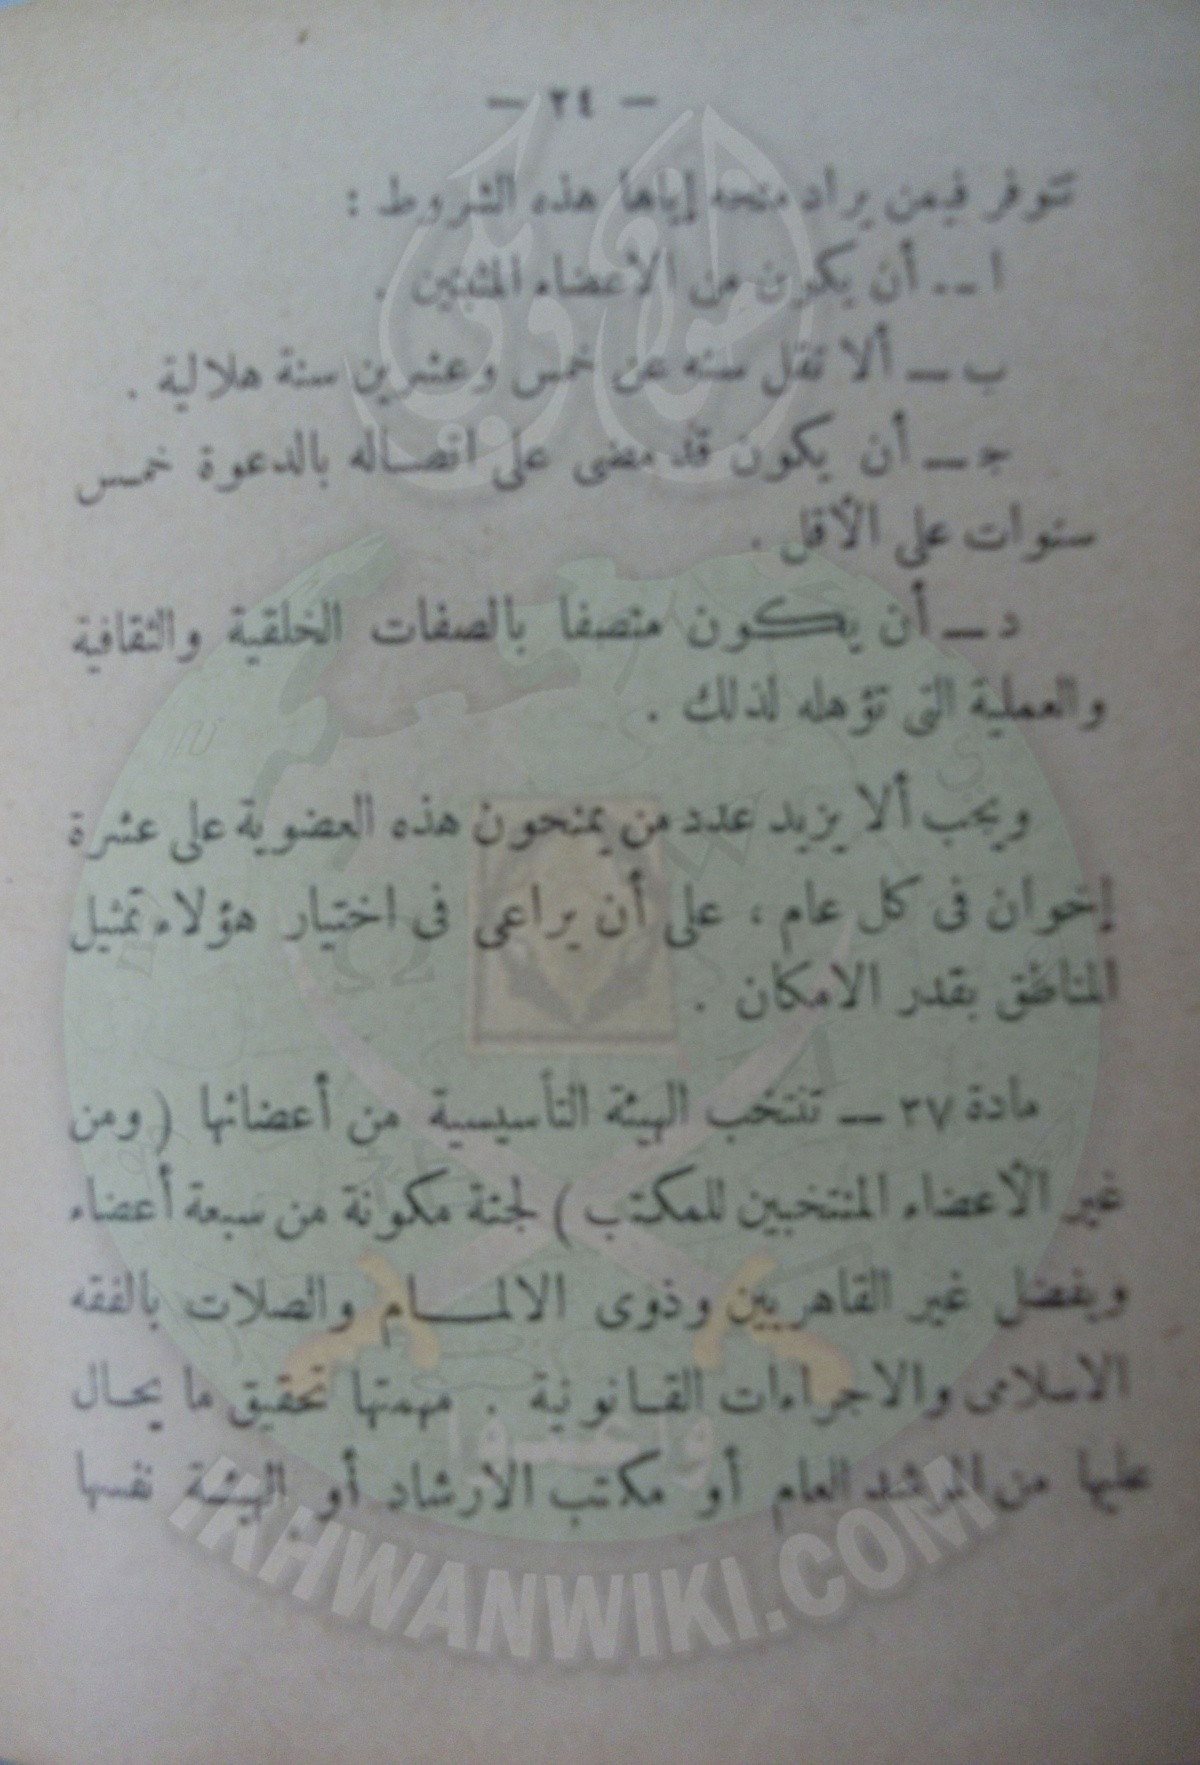 — ٢٤ —
تتوفر فيمن يراد منحه إياها هذه الشروط :
ا — أن يكون من الأعضاء المثبتين .
ب — ألا تقل سنه عن خمس وعشرين سنة هلالية .
جـ — أن يكون قد مضى على اتصاله بالدعوة خمس
سنوات على الأقل .
د — أن يكون متصفا بالصفات الخلقية والثقافية
والعملية التى تؤهله لذلك .
ويجب ألا يزيد عدد من يمنحون هذه العضوية على عشرة
إخوان فى كل عام ، على أن يراعى فى اختيار هؤلاء تمثيل
المناطق بقدر الامكان .
مادة ٣٧ — تنتخب الهيئة التأسيسية من أعضائها ( ومن
غير الأعضاء المنتخبين للمكتب ) لجنة مكونة من سبعة أعضاء
ويفضل غير القاهريين وذوى الالمــام والصلات بالفقه
الاسلامى والاجراءات القانونية . مهمتها تحقيق ما يحال
عليها من المرشد العام أو مكتب الارشاد أو الهيئة نفسها
إخوان ويكي
وأعدوا
IKHWANWIKI.COM